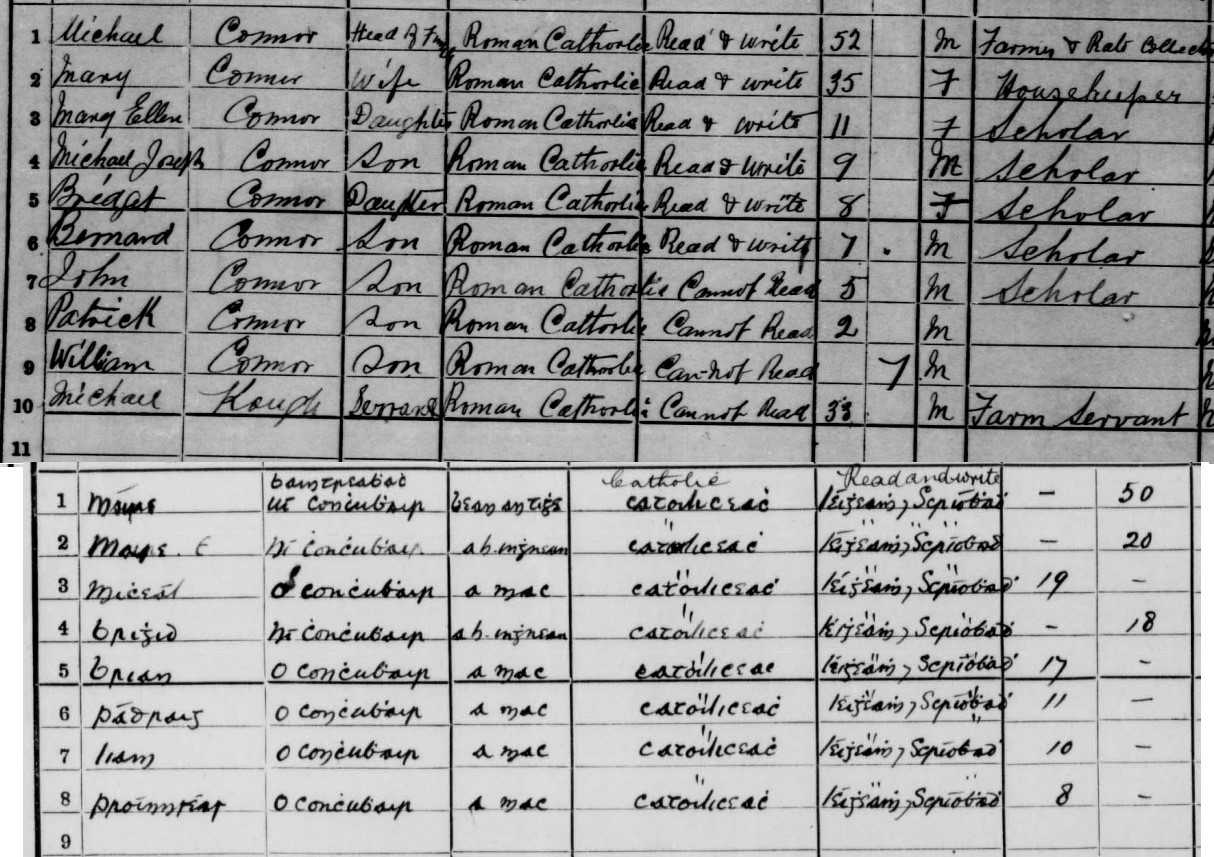 1 Michael Connor Head of Roman Catholic Read & write 52 M Farmer & Rate Collector
2 Mary Connor Wife Roman Catholic Read & write 35 F Housekeeper
3 Mary Ellen Connor Daughter Roman Catholic Read & write 11 F Scholar
4 Michael Joseph Connor Son Roman Catholic Read & write 9 M Scholar
5 Bridget Connor Daughter Roman Catholic Read & write 8 F Scholar
6 Bernard Connor Son Roman Catholic Read & write 7 M Scholar
7 John Connor Son Roman Catholic Cannot Read 5 M Scholar
8 Patrick Connor Son Roman Catholic Cannot Read 2 M
9 William Connor Son Roman Catholic Can-not Read 7 M
10 Michael Keogh Servant Roman Catholic Cannot Read 33 M Farm Servant
11
baintreabaċ Catholic Read and write
1 Máire Uí Conċubair bean an tiġe catoiliceaċ léiġeaṁ ⁊ Scríobaḋ – 50
2 Máire E Ní Conċubair a h-inġnean catoiliceaċ léiġeaṁ ⁊ Scríobaḋ – 20
3 Miċeál Ó Conċubair a mac catoiliceaċ léiġeaṁ ⁊ Scríobaḋ 19 –
4 Briġid Ní Conċubair a h-inġnean catoiliceaċ léiġeaṁ ⁊ Scríobaḋ – 18
5 Brian O Conċubair a mac catoiliceac léiġeaṁ ⁊ Scríobaḋ 17 –
6 Pádraig O Conċubair a mac catoiliceaċ léiġeaṁ ⁊ Scríobaḋ 11 –
7 Liam O Conċubair a mac catoiliceaċ léiġeaṁ ⁊ Scríobaḋ 10 –
8 Proinnsias O Conċubair a mac catoiliceaċ léiġeaṁ ⁊ Scríobaḋ 8 –
9